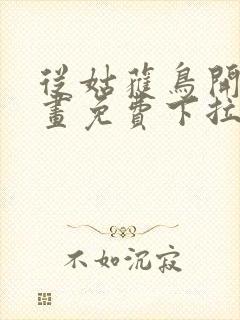 從姑蘿鳥開
畫免費下拉
不如沉寂